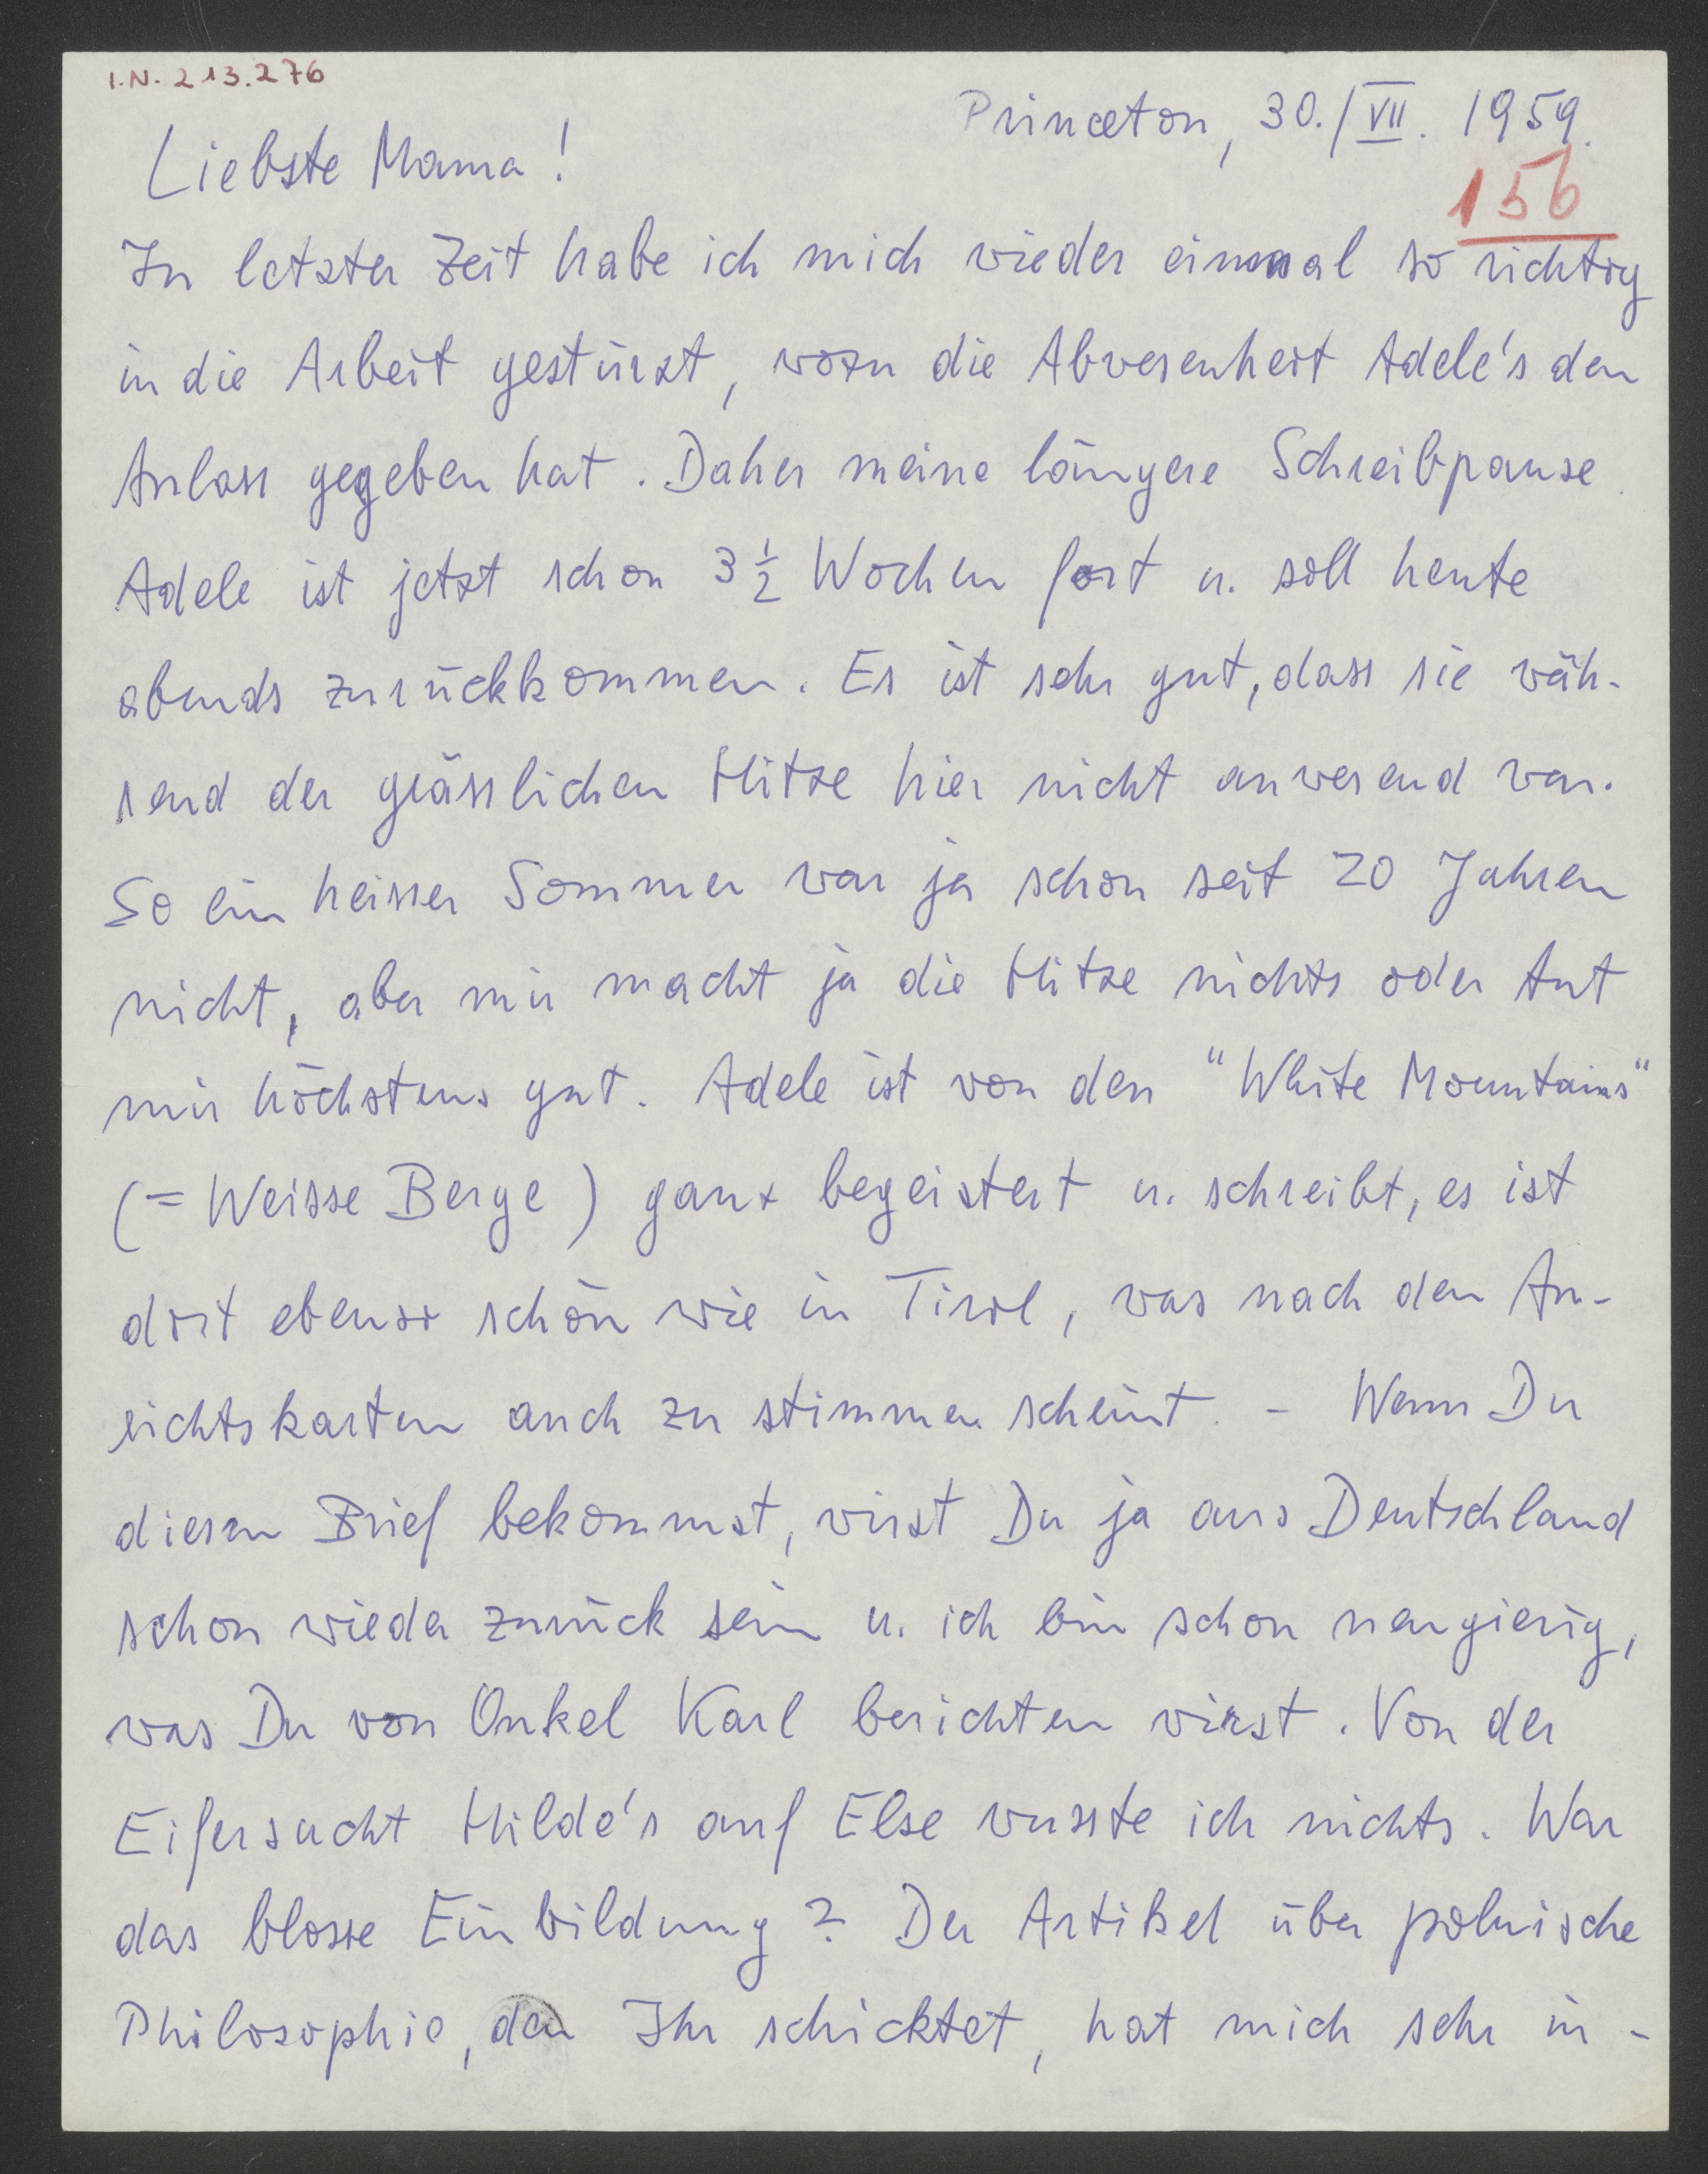 I.N. 213.276
Princeton, 30./VII. 1959.
Liebste Mama!
156
In letzter Zeit habe ich mich wieder einmal so richtig
in die Arbeit gestürzt, wozu die Abwesenheit Adele's den
Anlass gegeben hat. Daher meine längere Schreibpause.
Adele ist jetzt schon 3½ Wochen fort u. soll heute
abends zurückkommen. Es ist sehr gut, dass sie wäh-
rend der grässlichen Hitze hier nicht anwesend war.
So ein heisser Sommer war ja schon seit 20 Jahren
nicht, aber mir macht ja die Hitze nichts oder tut
mir höchstens gut. Adele ist von den "White Mountains"
(= Weisse Berge) ganz begeistert u. schreibt, es ist
dort ebenso schön wie in Tirol, was nach den An-
sichtskarten auch zu stimmen scheint. - Wenn Du
diesen Brief bekommst, wirst Du ja aus Deutschland
schon wieder zurück sein u. ich bin schon neugierig,
was Du von Onkel Karl berichten wirst. Von der
Eifersucht Hilde's auf Else wusste ich nichts. War
das blosse Einbildung? Der Artikel über polnische
Philosophie, den Ihr schicktet, hat mich sehr in-